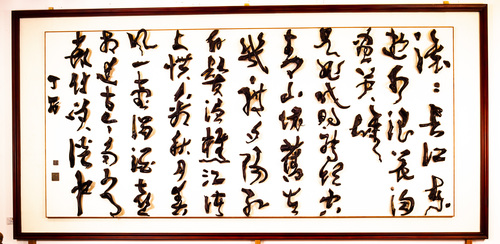 滚〻长江东
逝水浪花淘
尽英雄
是非成败转头空
青山依旧在
几度夕阳红
白发渔樵江渚
上惯看秋月春
风一壶浊酒喜
相逢古今多少
事都付笑谈中